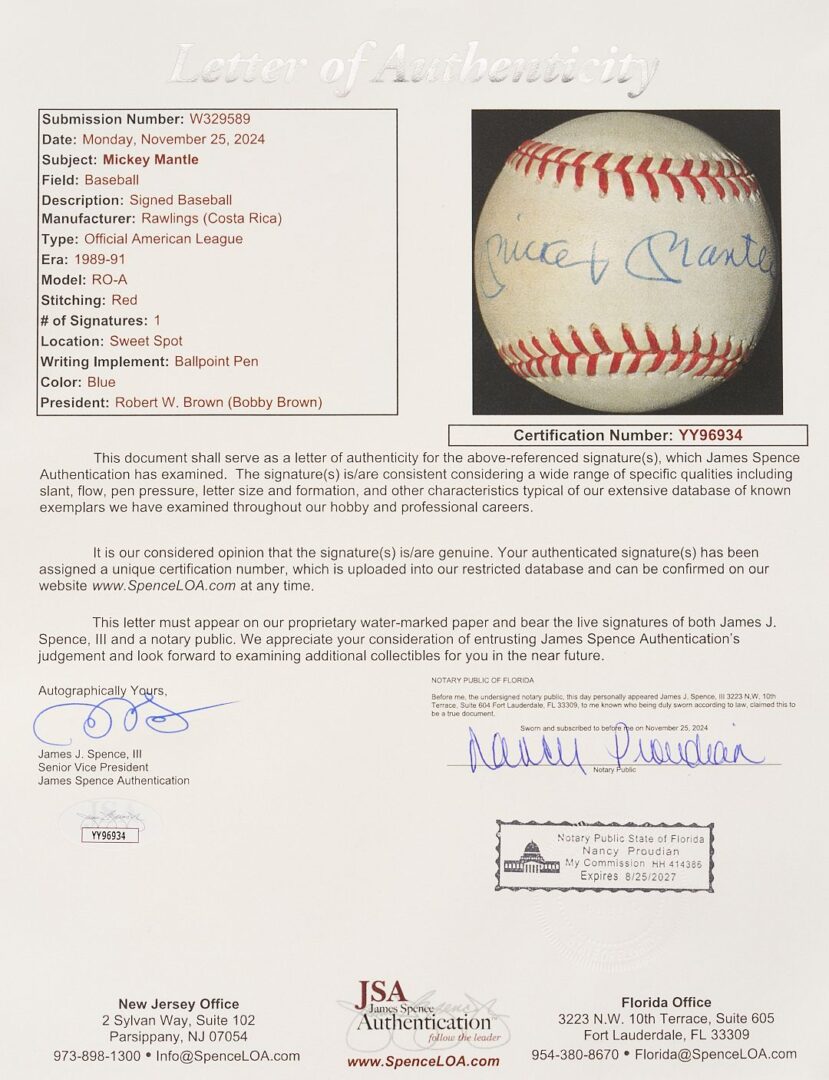 Letter of Authenticity
Submission Number: W329589
Date: Monday, November 25, 2024
Subject: Mickey Mantle
Field: Baseball
Description: Signed Baseball
Manufacturer: Rawlings (Costa Rica)
Type: Official American League
Era: 1989-91
Model: RO-A
Stitching: Red
# of Signatures: 1
Location: Sweet Spot
Writing Implement: Ballpoint Pen
Color: Blue
President: Robert W. Brown (Bobby Brown)
Mickey Mantle
Certification Number: YY96934
This document shall serve as a letter of authenticity for the above-referenced signature(s), which James Spence
Authentication has examined. The signature(s) is/are consistent considering a wide range of specific qualities including
slant, flow, pen pressure, letter size and formation, and other characteristics typical of our extensive database of known
exemplars we have examined throughout our hobby and professional careers.
It is our considered opinion that the signature(s) is/are genuine. Your authenticated signature(s) has been
assigned a unique certification number, which is uploaded into our restricted database and can be confirmed on our
website www.SpenceLOA.com at any time.
This letter must appear on our proprietary water-marked paper and bear the live signatures of both James J.
Spence, III and a notary public. We appreciate your consideration of entrusting James Spence Authentication's
judgement and look forward to examining additional collectibles for you in the near future.
Autographically Yours,
James J. Spence, III
Senior Vice President
James Spence Authentication
YY96934
NOTARY PUBLIC OF FLORIDA
Before me, the undersigned notary public, this day personally appeared James J. Spence, III 3223 N.W. 10th
Terrace, Suite 604 Fort Lauderdale, FL 33309, to me known who being duly sworn according to law, claimed this to
be a true document.
Sworn and subscribed to before me on November 25, 2024
Nancy Proudian
Notary Public
Notary Public State of Florida
Nancy Proudian
My Commission HH 414386
Expires 8/25/2027
New Jersey Office
2 Sylvan Way, Suite 102
Parsippany, NJ 07054
973-898-1300 • Info@SpenceLOA.com
JSA
James Spence
Authentication
follow the leader
www.SpenceLOA.com
Florida Office
3223 N.W. 10th Terrace, Suite 605
Fort Lauderdale, FL 33309
954-380-8670 • Florida@SpenceLOA.com